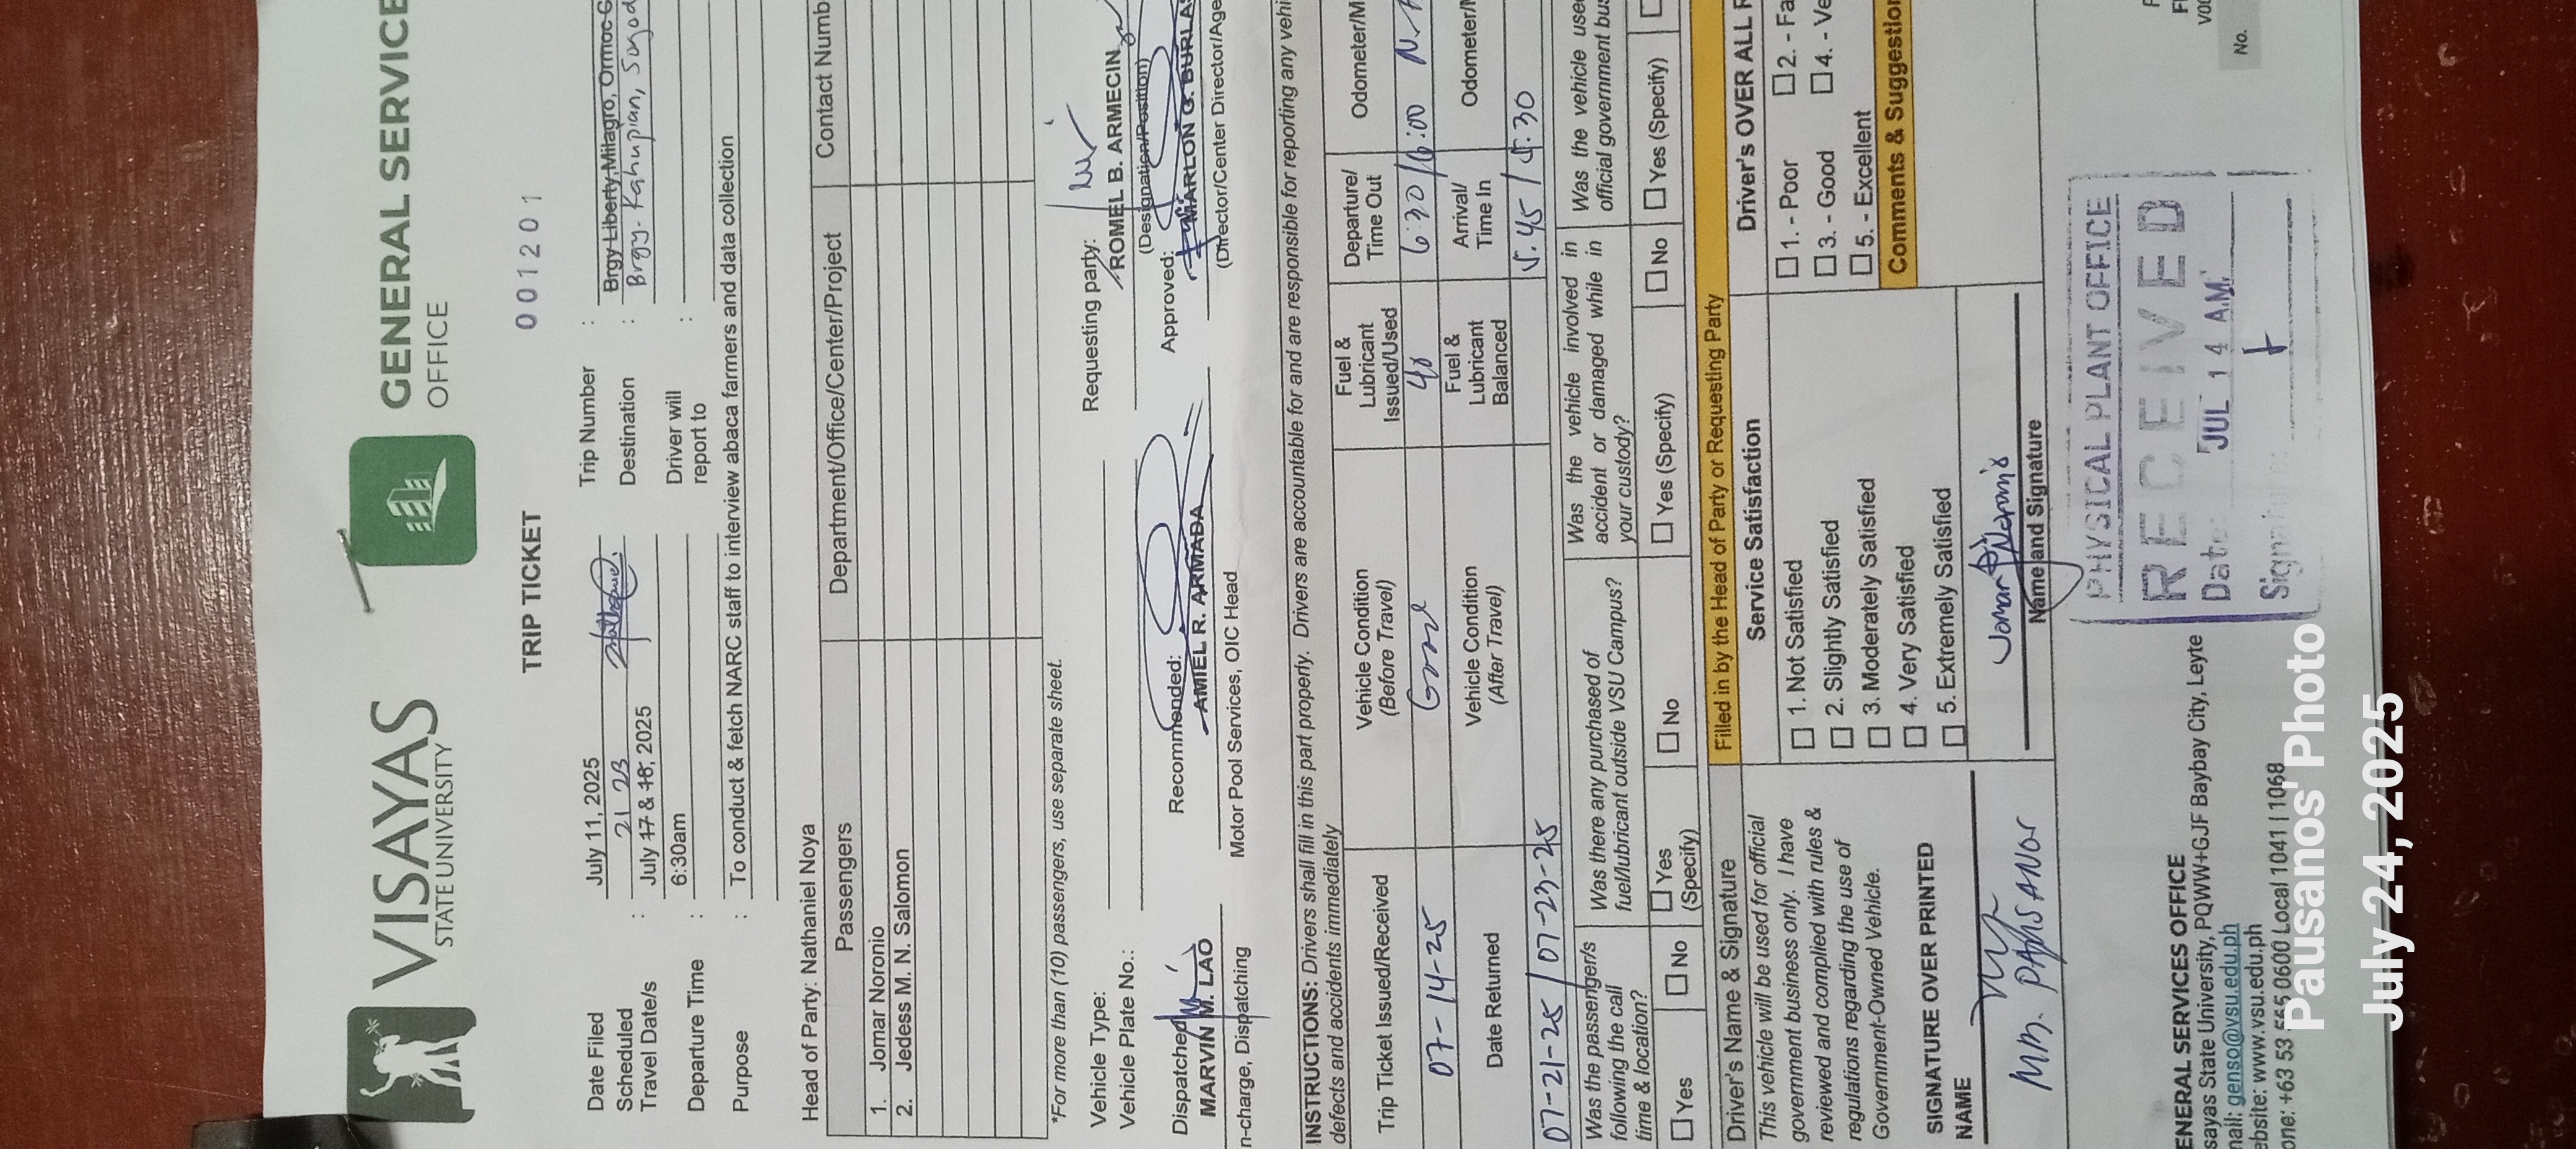 VISAYAS
STATE UNIVERSITY
GENERAL SERVICE
OFFICE
TRIP TICKET
001201
Date Filed : July 11, 2025
Trip Number :
Scheduled Travel Date/s : July 17 & 18, 2025
21 23
Destination : Brgy Liberty,Milagro, Ormoc
Brgy. Kahupian, Sogod
Departure Time : 6:30am
Driver will report to :
Purpose : To conduct & fetch NARC staff to interview abaca farmers and data collection
Head of Party: Nathaniel Noya
Passengers
Department/Office/Center/Project
Contact Numb
1. Jomar Noronio
2. Jedess M. N. Salomon
*For more than (10) passengers, use separate sheet.
Vehicle Type:
Vehicle Plate No.:
Requesting party:
ROMEL B. ARMECIN
(Designation/Position)
Dispatched
MARVIN M. LAO
n-charge, Dispatching
Recommended:
AMIEL R. ARMADA
Motor Pool Services, OIC Head
Approved:
MARLON G. BURLAS
(Director/Center Director/Age
INSTRUCTIONS: Drivers shall fill in this part properly. Drivers are accountable for and are responsible for reporting any vehi
defects and accidents immediately
Trip Ticket Issued/Received
Vehicle Condition
(Before Travel)
Fuel &
Lubricant
Issued/Used
Departure/
Time Out
Odometer/M
07-14-25
Good
40
6:30 / 6:00
Date Returned
Vehicle Condition
(After Travel)
Fuel &
Lubricant
Balanced
Arrival/
Time In
Odometer/M
07-21-25 / 07-23-25
5.45 / 5:30
Was the passenger/s
following the call
time & location?
Was there any purchased of
fuel/lubricant outside VSU Campus?
Was the vehicle involved in
accident or damaged while in
your custody?
Was the vehicle used
official government bus
Yes
No
Yes
(Specify)
No
Yes (Specify)
No
Yes (Specify)
Driver's Name & Signature
Filled in by the Head of Party or Requesting Party
This vehicle will be used for official
government business only. I have
reviewed and complied with rules &
regulations regarding the use of
Government-Owned Vehicle.
SIGNATURE OVER PRINTED
NAME
PAUSANOS
Service Satisfaction
1. Not Satisfied
2. Slightly Satisfied
3. Moderately Satisfied
4. Very Satisfied
5. Extremely Satisfied
Jomar Noronio
Name and Signature
Driver's OVER ALL
1. - Poor
2. - Fa
3. - Good
4. - Ve
5. - Excellent
Comments & Suggestion
PHYSICAL PLANT OFFICE
RECEIVED
Date: JUL 14 AM
ENERAL SERVICES OFFICE
sayas State University, PQWW+GJF Baybay City, Leyte
nail: genso@vsu.edu.ph
ebsite: www.vsu.edu.ph
one: +63 53 565 0600 Local 1041 | 1068
No.
Pausanos' Photo
July 24, 2025